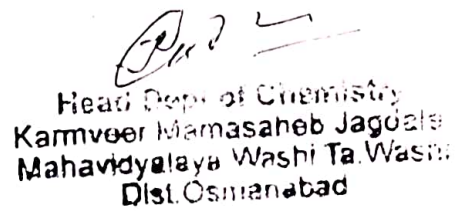 Head Dept of Chemistry
Karmveer Mamasaheb Jagdale
Mahavidyalaya Washi Ta.Washi
Dist.Osmanabad